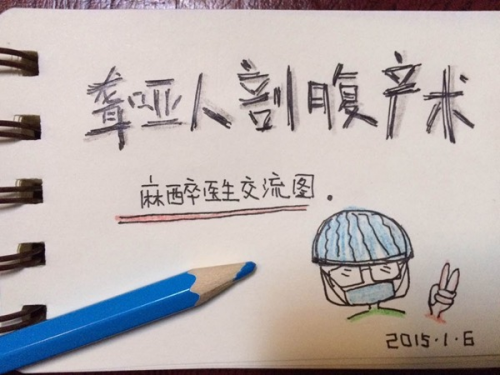 聋哑人剖腹产术
麻醉医生交流图。
2015·1·6